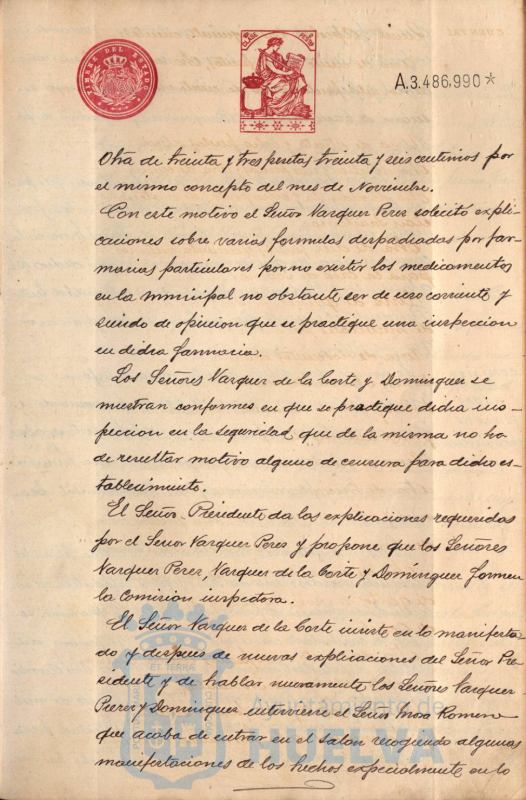 TIMBRE DEL ESTADO
CLASE
A.3.486,990*
Otra de treinta y tres pesetas treinta y seis centimos por
el mismo concepto del mes de Noviembre.
Con este motivo el Señor Vazquez Perez solicitó expli-
caciones sobre varias formulas despachadas por far-
macias particulares por no existir los medicamentos
en la municipal no obstante ser de uso corriente y
siendo de opinion que se practique una inspeccion
en dicha farmacia.
Los Señores Vazquez de la Corte y Dominguez se
muestran conformes en que se practique dicha ins-
peccion en la seguridad que de la misma no ha
de resultar motivo alguno de censura para dicho es-
tablecimiento.
El Señor Presidente da las explicaciones requeridas
por el Señor Vazquez Perez y propone que los Señores
Vazquez Perez, Vazquez de la Corte y Domínguez formen
la Comision inspectora.
El Señor Vazquez de la Corte insiste en lo manifesta-
do y despues de nuevas explicaciones del Señor Pre-
sidente y de hablar nuevamente los Señores Vazquez
Perez y Dominguez interviene el Señor Mora Romero
que acaba de entrar en el salon recogiendo algunas
manifestaciones de los hechos especialmente en lo
Ayuntamiento de
HUELVA